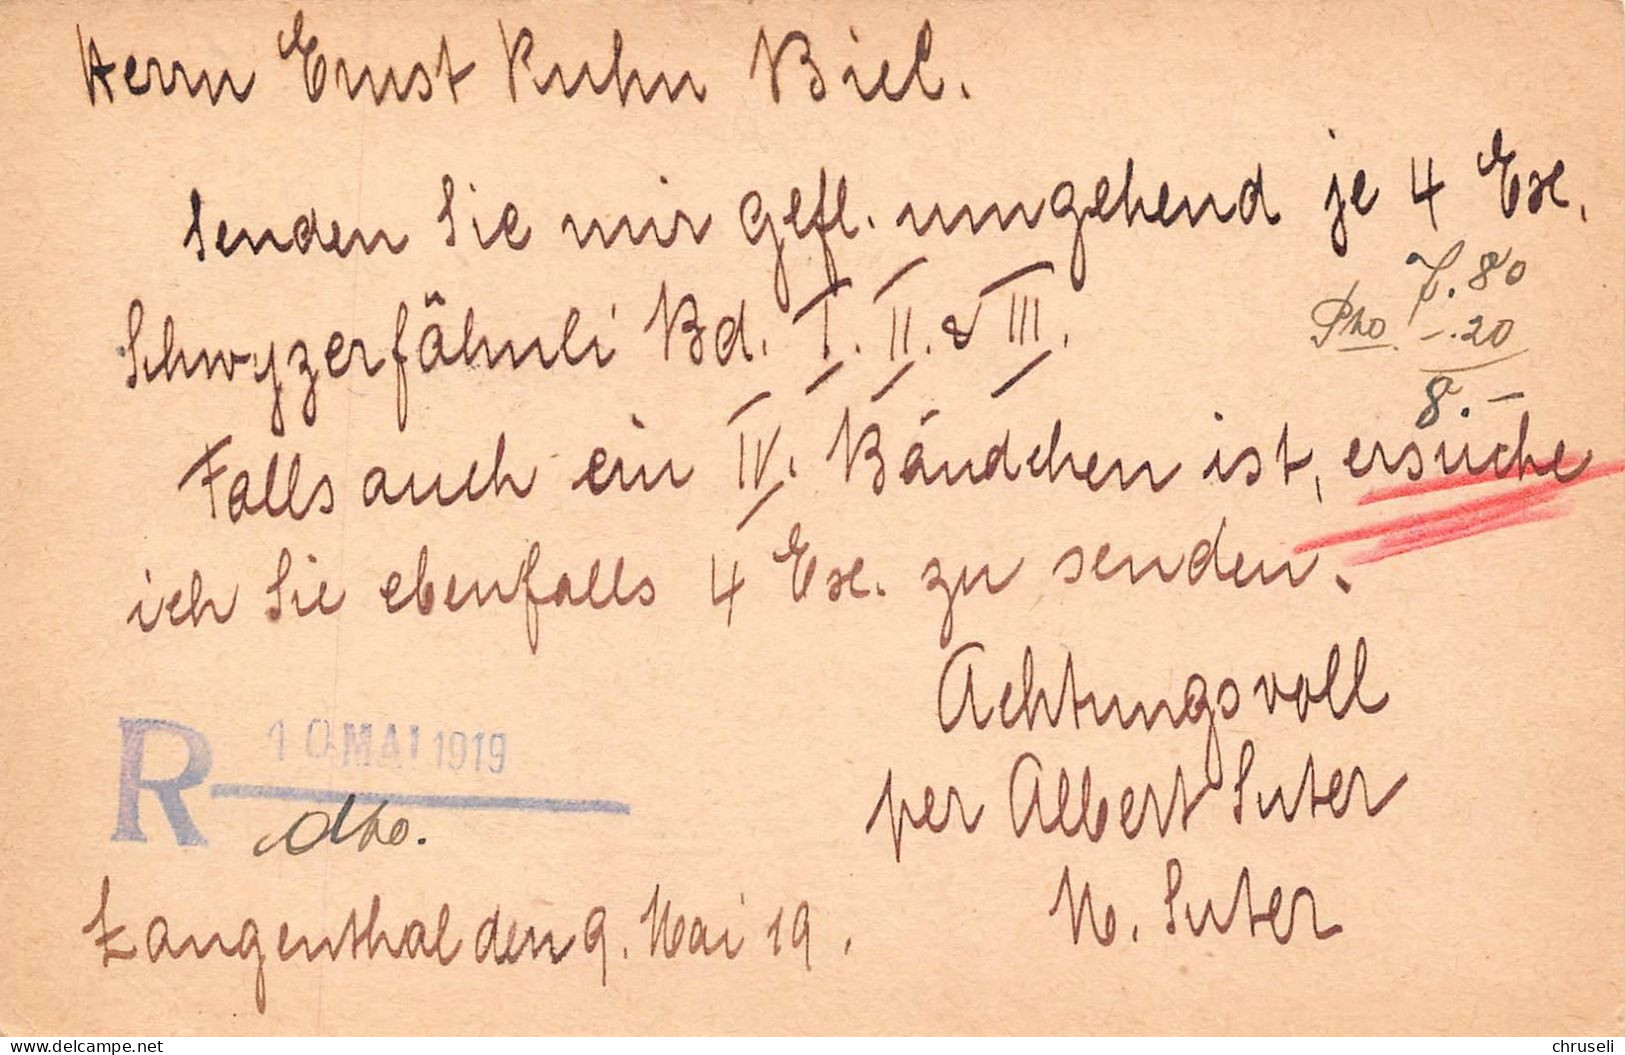 Herrn Ernst Kuhn Biel.
Senden Sie mir gefl. umgehend je 4 Ex.
Schwyzerfähnli Bd. I. II. & III.
7.80
Pto -.20
8.-
Falls auch ein IV. Bändchen ist, ersuche
ich Sie ebenfalls 4 Ex. zu senden.
Achtungsvoll
per Albert Suter
M. Suter
R 10 MAI 1919
Langenthal den 9. Mai 19.
delcampe.net
chruseli